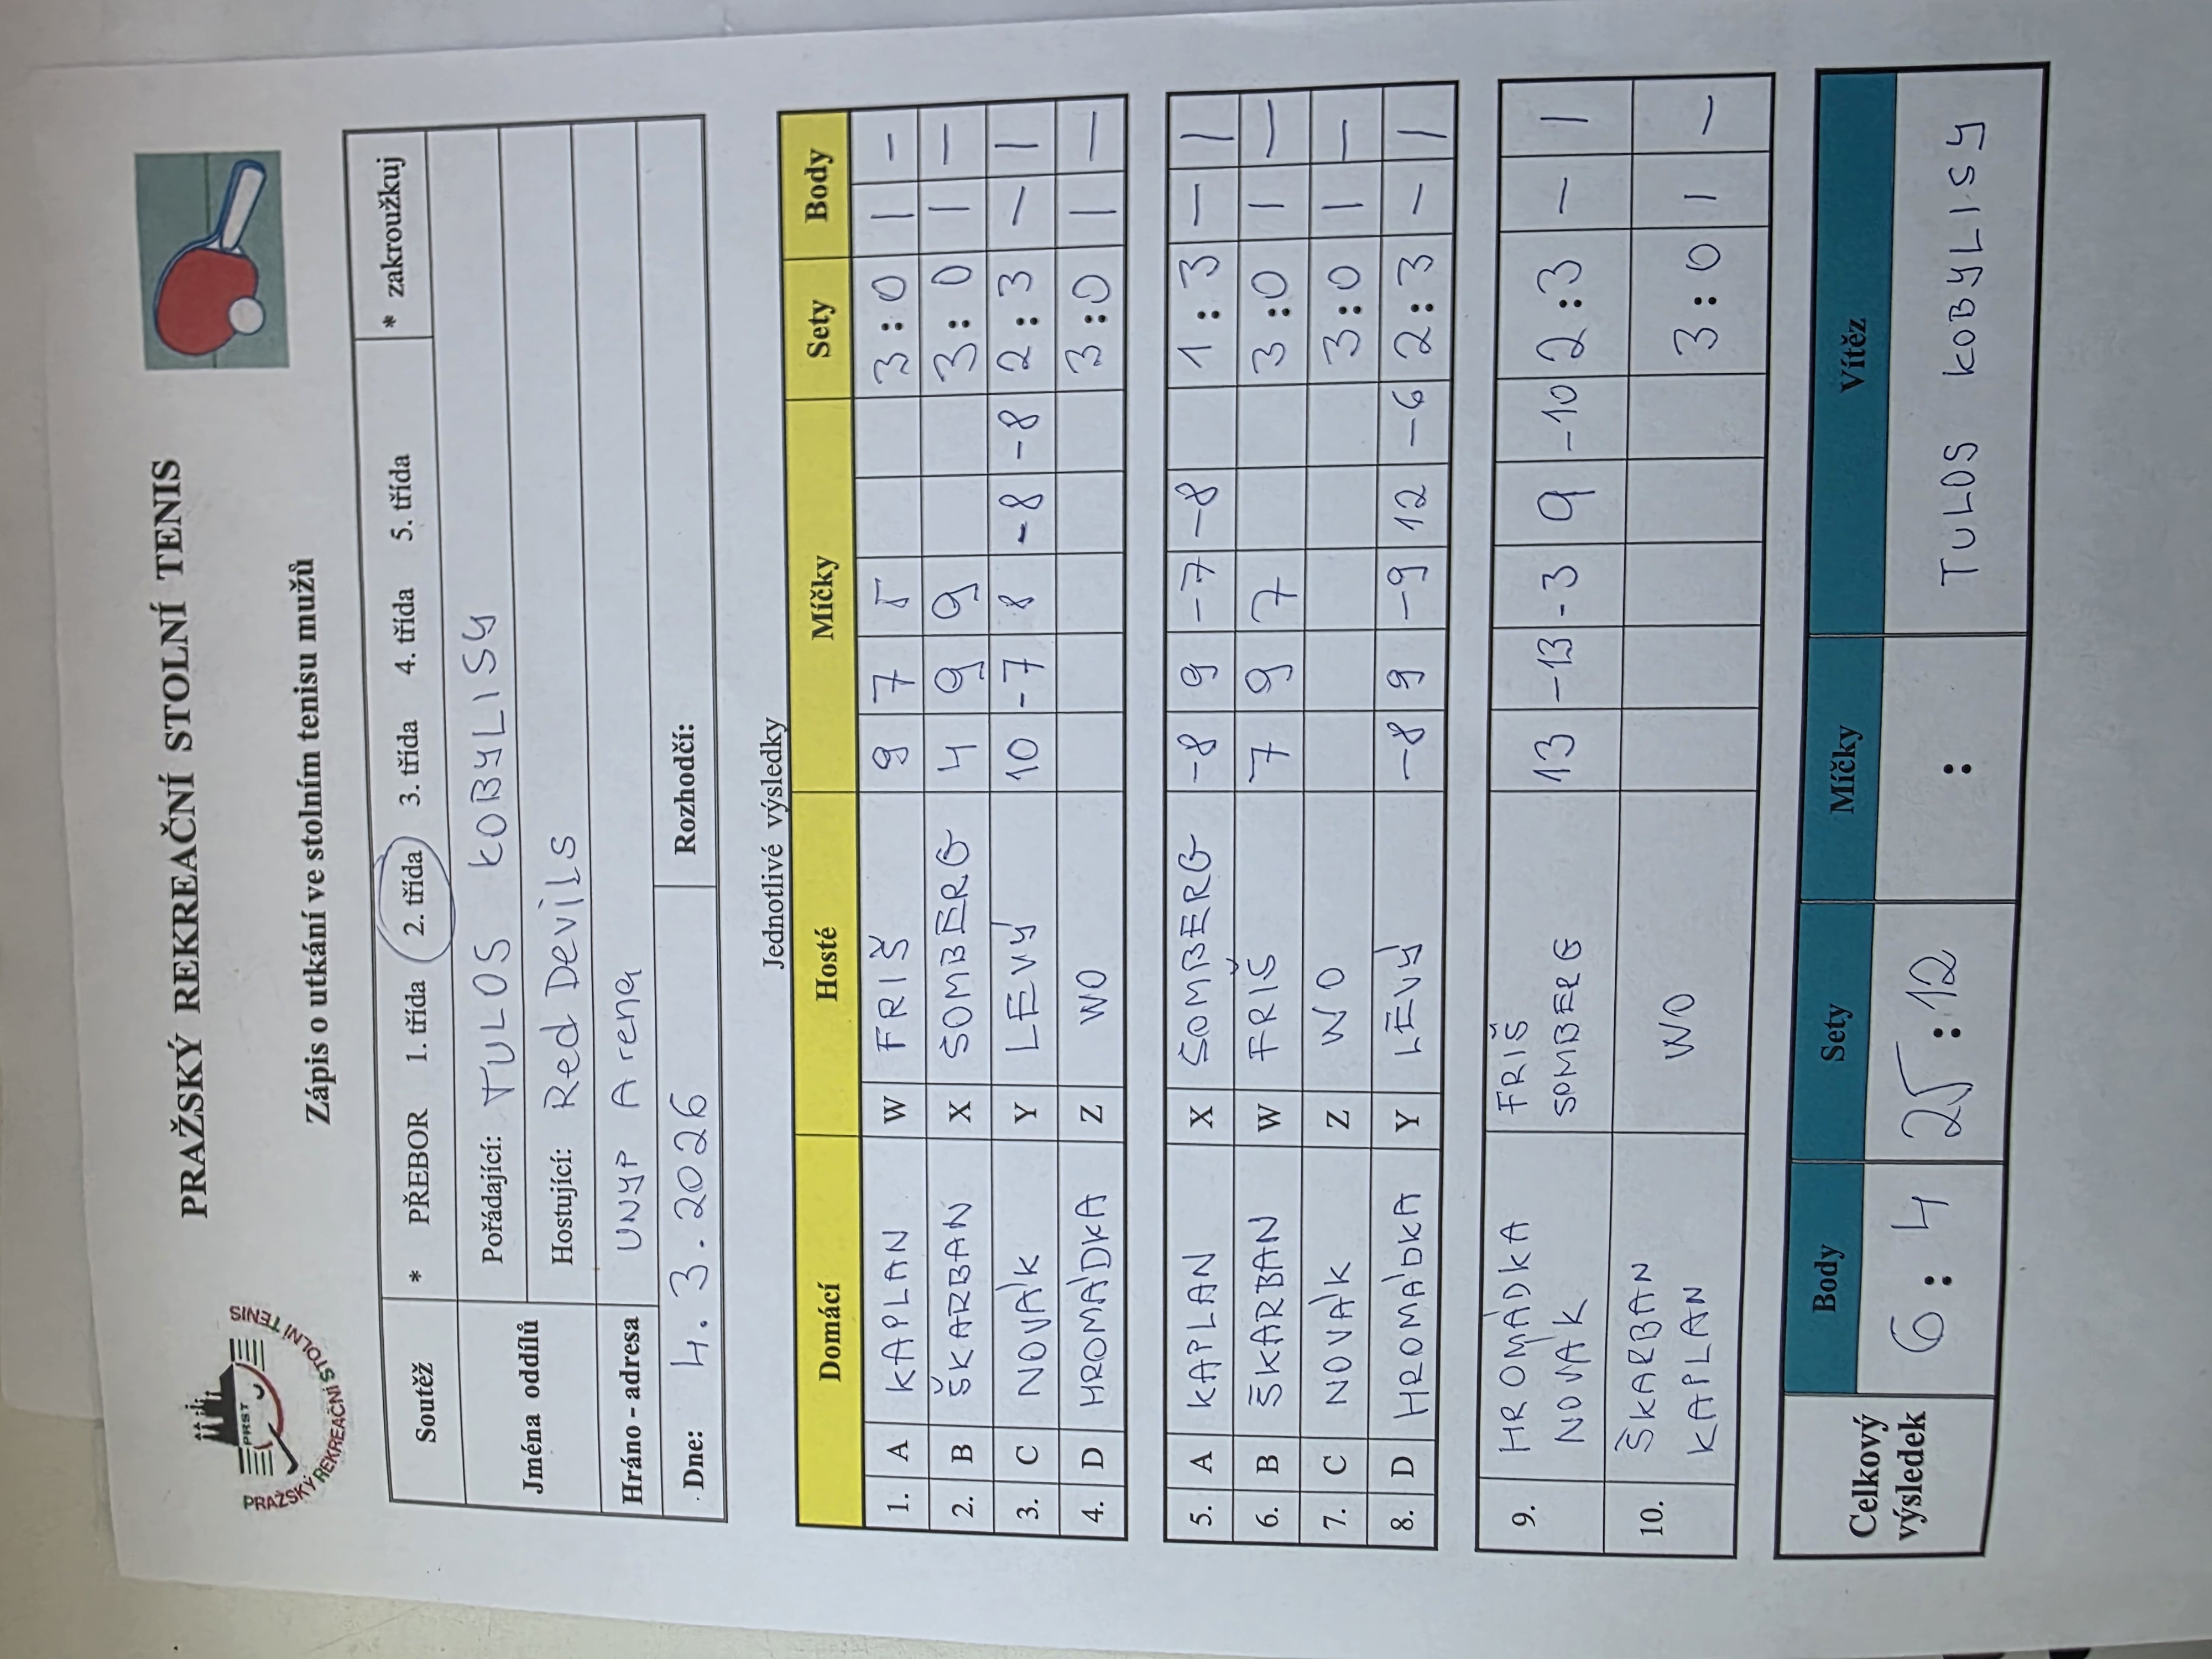 PRAŽSKÝ REKREAČNÍ STOLNÍ TENIS
PRST
PRAŽSKÝ REKREAČNÍ STOLNÍ TENIS
Zápis o utkání ve stolním tenisu mužů
Soutěž * PŘEBOR 1. třída 2. třída 3. třída 4. třída 5. třída * zakroužkuj
Jména oddílů
Pořádající: TULOS KOBYLISY
Hostující: Red Devils
Hráno - adresa UNYP Arena
Dne: 4. 3. 2026 Rozhodčí:
Jednotlivé výsledky
Domácí Hosté Míčky Sety Body
1. A KAPLAN W FRIŠ 9 7 5 3:0 1 -
2. B ŠKARBAN X ŠOMBERG 4 9 9 3:0 1 -
3. C NOVÁK Y LEVÝ 10 -7 8 -8 -8 2:3 - 1
4. D HROMÁDKA Z WO 3:0 1 -
5. A KAPLAN X ŠOMBERG -8 9 -7 -8 1:3 - 1
6. B ŠKARBAN W FRIŠ 7 9 7 3:0 1 -
7. C NOVÁK Z WO 3:0 1 -
8. D HROMÁDKA Y LEVÝ -8 9 -9 12 -6 2:3 - 1
9. HROMÁDKA FRIŠ 13 -13 -3 9 -10 2:3 - 1
NOVÁK SOMBERG
10. ŠKARBAN WO 3:0 1 -
KAPLAN
Celkový výsledek
Body Sety Míčky Vítěz
6:4 25:12 : TULOS KOBYLISY